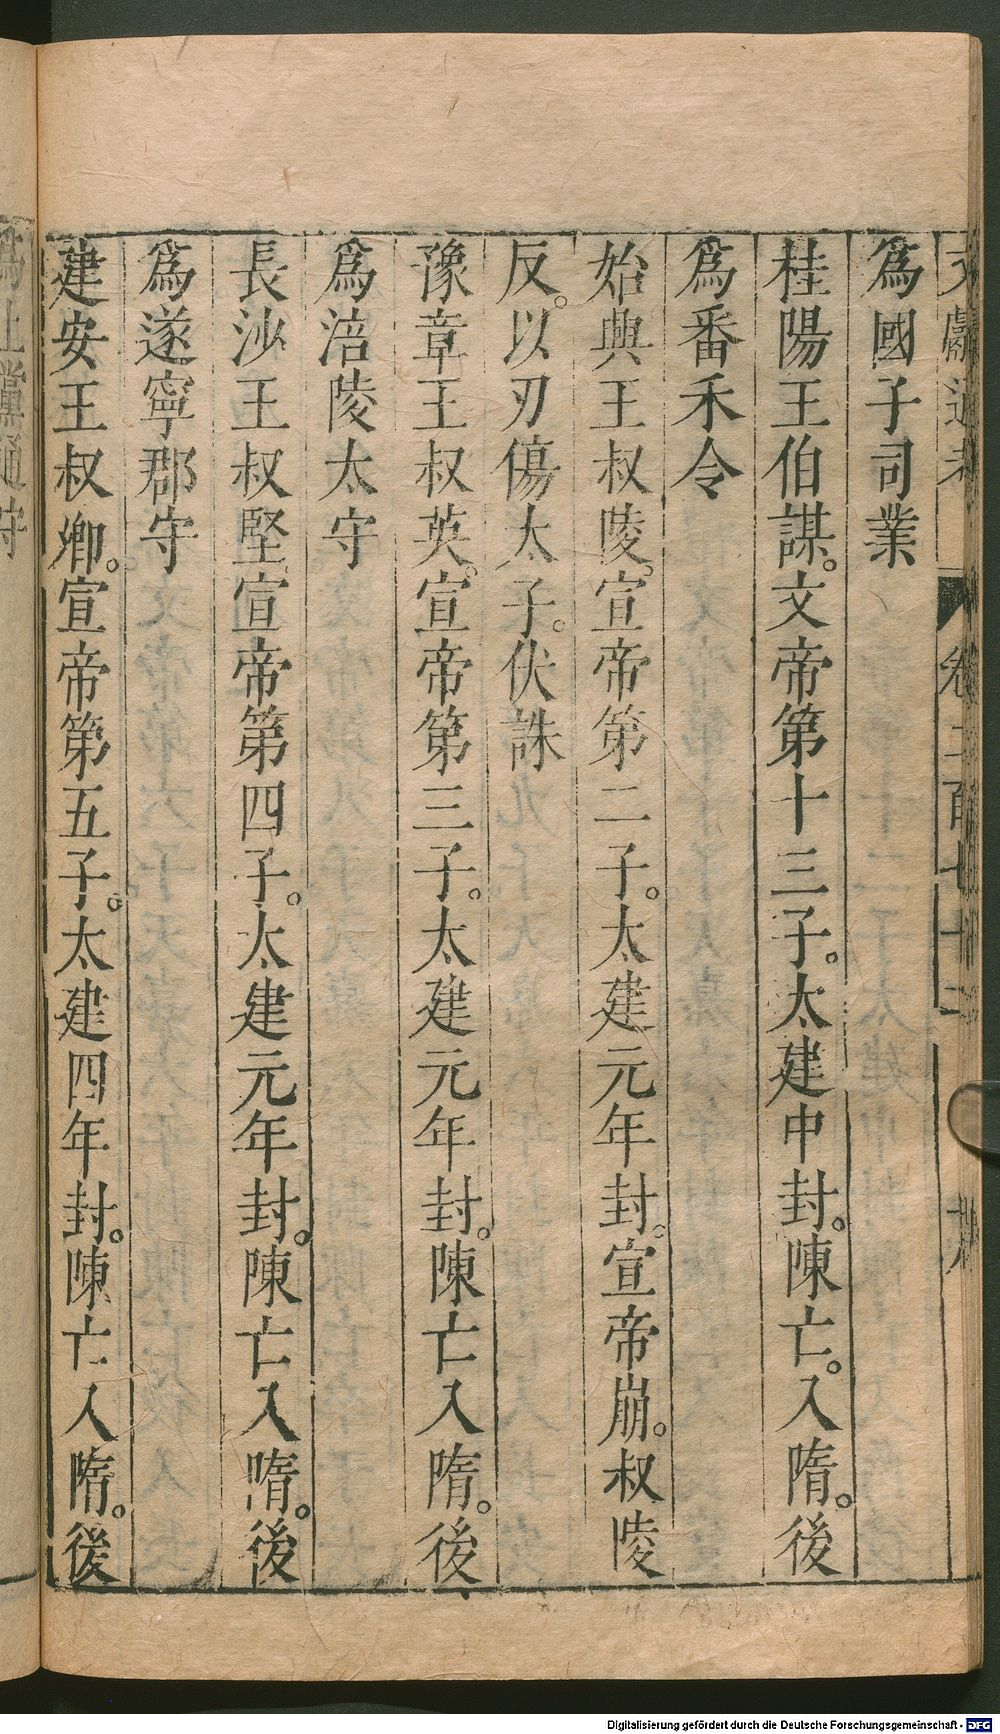 文獻通考 卷二百七十二
為國子司業
桂陽王伯謀。文帝第十三子。太建中封。陳亡。入隋。後
為番禾令
始興王叔陵。宣帝第二子。太建元年封。宣帝崩。叔陵
反。以刃傷太子。伏誅
豫章王叔英。宣帝第三子。太建元年封。陳亡入隋。後
為涪陵太守
長沙王叔堅宣帝第四子。太建元年封。陳亡入隋。後
為遂寧郡守
建安王叔卿。宣帝第五子。太建四年封。陳亡入隋。後
為上黨通守
Digitalisierung gefördert durch die Deutsche Forschungsgemeinschaft - DFG